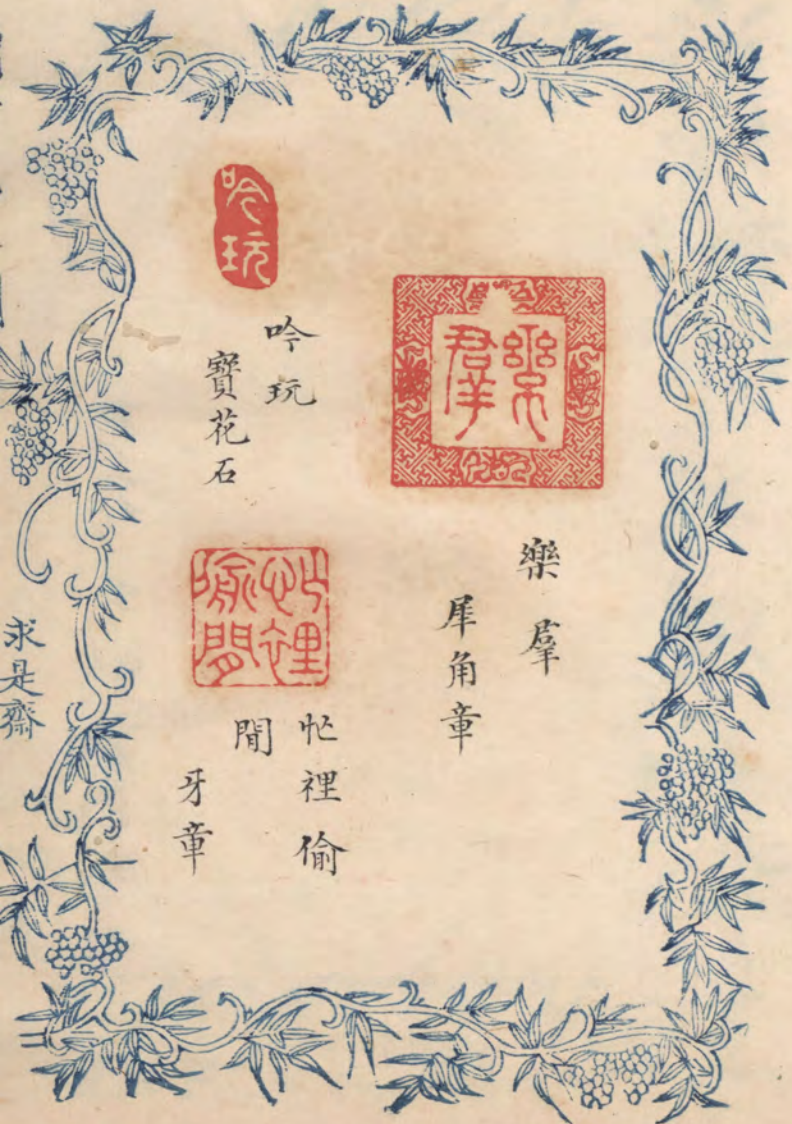 樂羣
樂羣
犀角章
吟玩
吟玩
寶花石
忙裡偷閒
忙裡偷
閒
牙章
求是齋